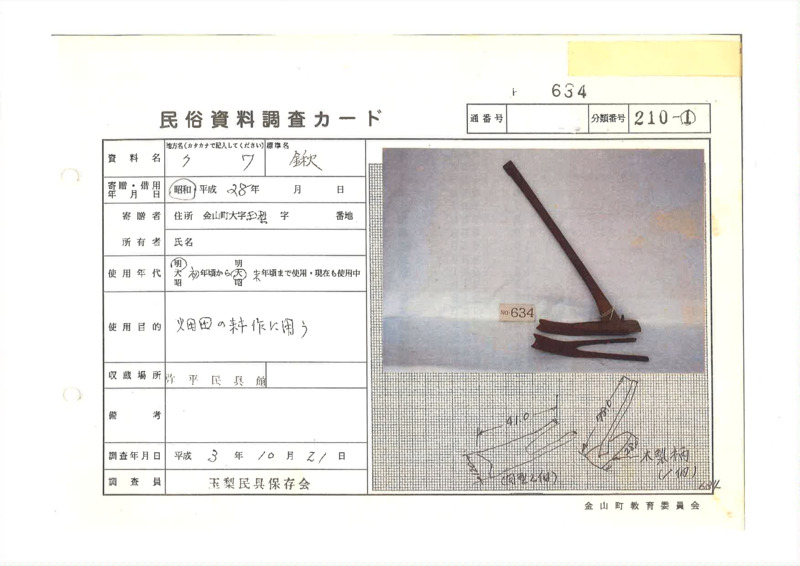 634
民俗資料調査カード
通番号
分類番号 210-①
資料名
地方名(カタカナで記入してください) クワ
標準名 鍬
寄贈・借用年月日 昭和 平成 28年 月 日
寄贈者 住所 金山町大字玉梨 字 番地
所有者 氏名
使用年代 明大昭 初年頃から 明大昭 末年頃まで使用・現在も使用中
使用目的 畑田の耕作に用う
収蔵場所 平民具館
備考
調査年月日 平成 3年 10月 21日
調査員 玉梨民具保存会
NO. 634
41.0
(同型2個)
木製柄
(1個)
634
金山町教育委員会